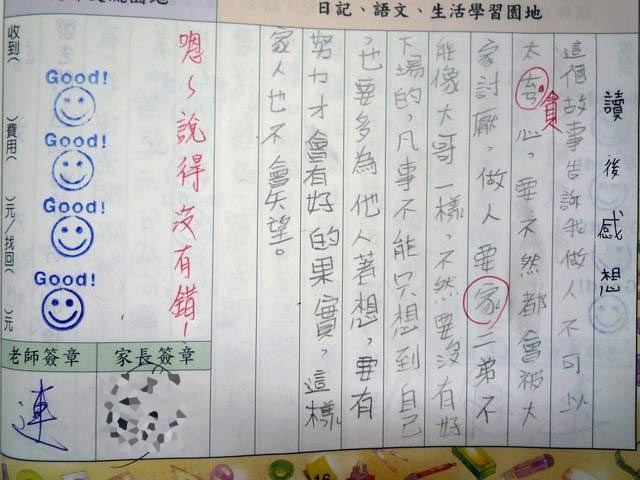 日記、語文、生活學習園地
讀後感想
這個故事告訴我做人不可以
太夸心，要不然都會被大
貪
家討厭，做人要家二弟不
能像大哥一樣，不然要沒有好
下場的，凡事不能只想到自己
，也要多為他人著想，要有
努力才會有好的果實，這樣
家人也不會失望。
嗯～說得沒有錯！
Good!
Good!
Good!
Good!
收到（　）費用（　）元/找回（　）元
家長簽章
老師簽章
連
16